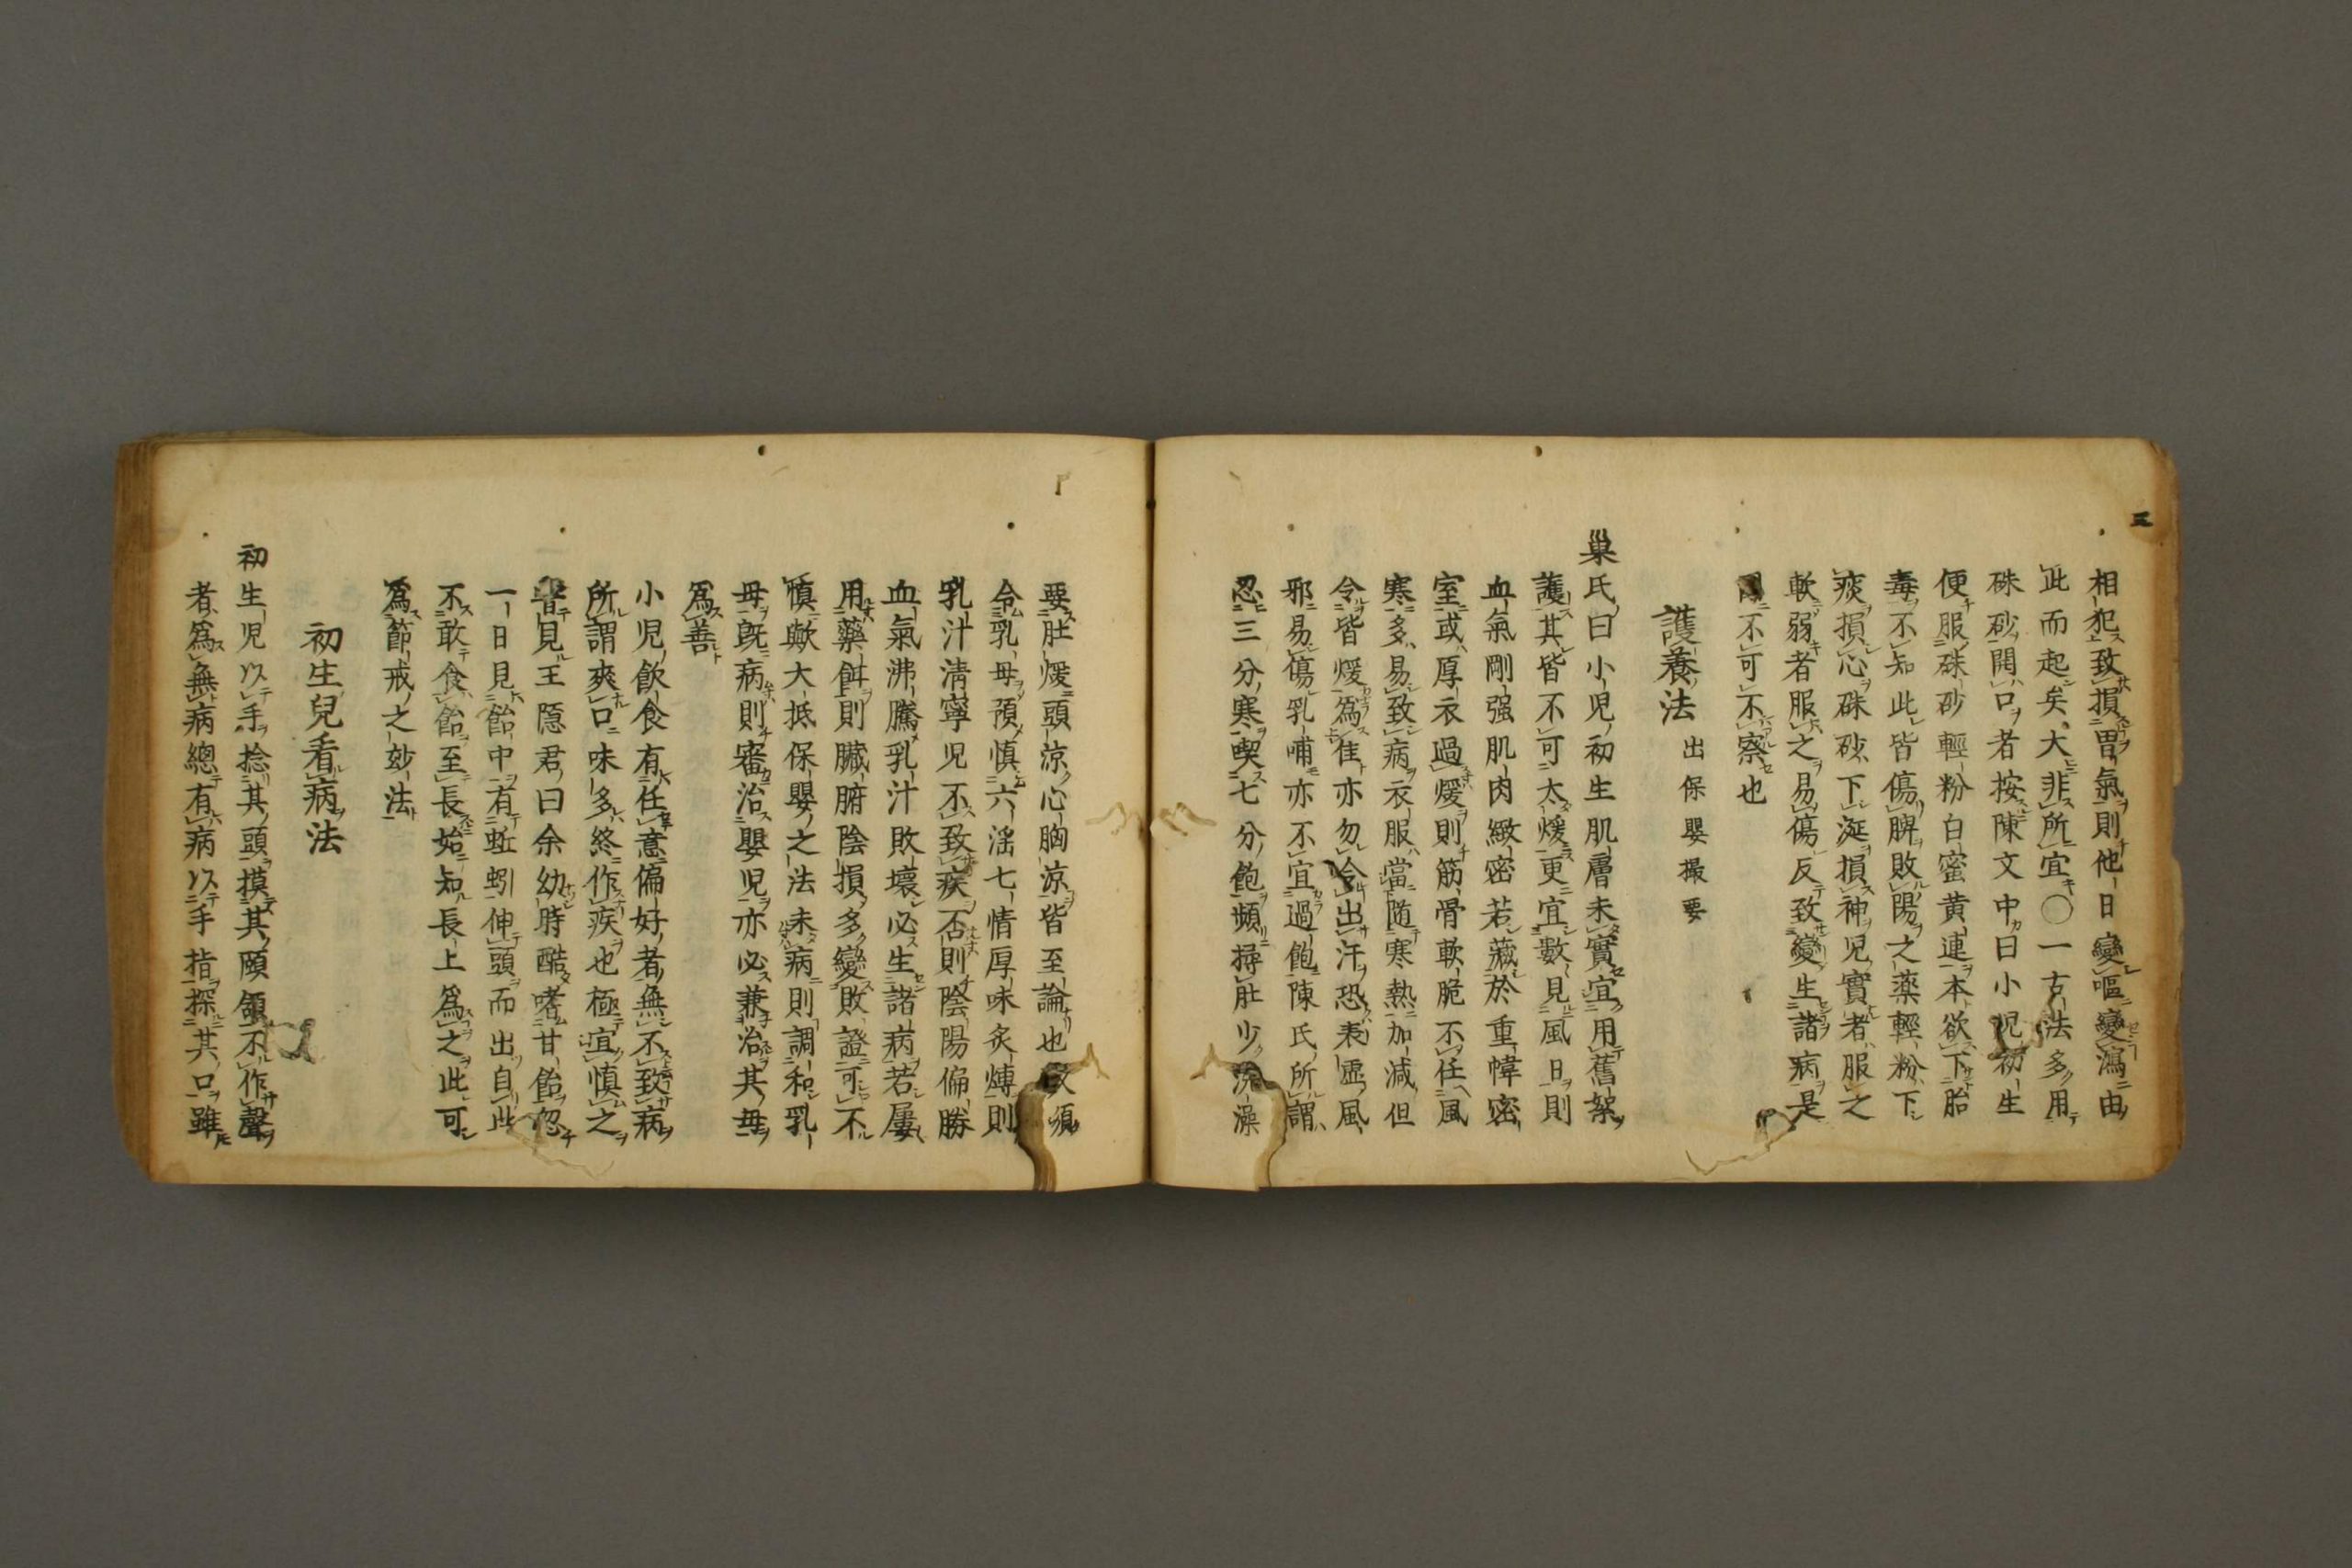 三
相犯致損胃氣則他日變嘔變瀉由
此而起矣大非所宜〇一古法多用
硃砂開口者按陳文中曰小児初生
便服硃砂輕粉白蜜黄連本欲下胎
毒不知此皆傷脾敗陽之薬輕粉下
痰損心硃砂下涎損神児實者服之
軟弱者服之易傷反致變生諸病是
不可不察也
護養法 出保嬰撮要
巢氏曰小児初生肌膚未實宜用舊絮
護其皆不可太煖更宜數見風日則
血氣剛强肌肉緻密若藏於重幃密
室或厚衣過煖則筋骨軟脆不任風
寒多易致病衣服當隨寒熱加減但
令皆煖爲佳亦勿令出汗恐表虛風
邪易傷乳哺亦不宜過飽陳氏所謂
忍三分寒喫七分飽頻揉肚少洗澡
要肚煖頭涼心胸涼皆至論也又須
令乳母預慎六淫七情厚味炙煿則
乳汁清寧児不致疾否則陰陽偏勝
血氣沸騰乳汁敗壞必生諸病若屢
用藥餌則臓腑陰損多變敗證可不
慎歟大抵保嬰之法未病則調和乳
母既病則審治嬰児亦必兼治其母
爲善
小児飲食有任意偏好者無不致病
所謂爽口味多終作疾也極宜慎之
昔見王隠君曰余幼時酷嗜甘飴忽
一日見飴中有蚯蚓伸頭而出自此
不敢食飴至長始知長上爲之此可
爲節戒之妙法
初生兒看病法
初生児以手捻其頭摸其頤頷不作聲
者爲無病總有病以手指探其口雖